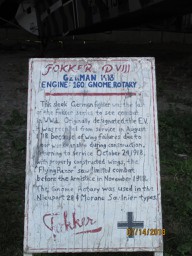 FOKKER D.VIII
GERMAN 1918
ENGINE: 160 GNOME ROTARY
This sleek German fighter was the last
of the Fokker series to see combat
in WWI. Originally designated the E.V
it was recalled from service in August
1918 because of wing failures due to
poor workmanship during construction.
Returning to service October 24, 1918,
with properly constructed wings, the
Flying Razor saw limited combat
before the Armistice in November 1918.
The Gnome Rotary was used in the
Nieuport 28 & Morane Saulnier types.
Fokker
07/14/2010